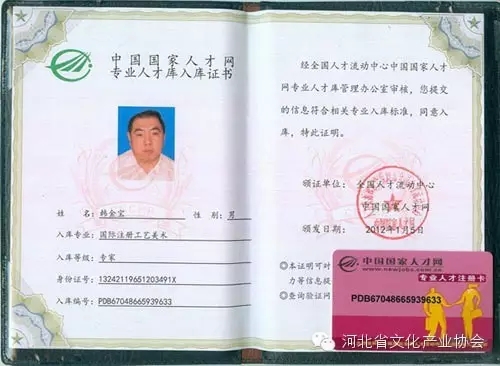 中国国家人才网
专业人才库入库证书
姓 名: 韩金宝 性 别: 男
入库专业: 国际注册工艺美术
入库等级: 专家
身份证号: 13242119651203491X
入库编号: PDB67048665939633
经全国人才流动中心中国国家人才
网专业人才库管理办公室审核,您提交
的信息符合相关专业入库标准,同意入
库,特此证明。
颁证单位: 全国人才流动中心
中国国家人才网
颁发日期: 2012年1月5日
◎本证明可时
力等信息提
◎查询验证网
中国国家人才网
www.newjobs.com.cn
专业人才注册卡
PDB67048665939633
河北省文化产业协会